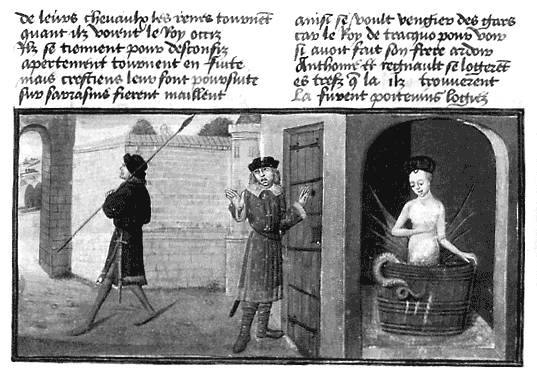 de leurs chevaulx les renes tournent
quant ilz voient le Roy occiz
Ilz se tiennent pour desconfiz
apertement tournent en fuite
mais crestiens leur font poursuite
sur sarrasins fierent maillent
ainsi se voult vengier des gars
car le Roy de tracquo pour voir
si avoit fait son frere ardoir
Anthoine et regnault se logerent
es trefz q̃ la ilz trouverent
La furent poitevins logiez